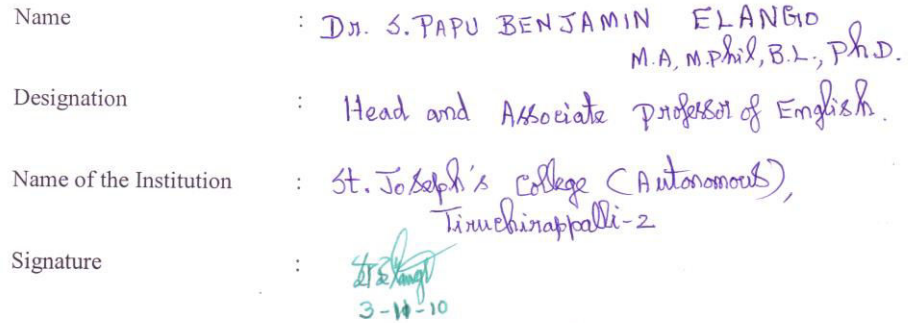 Name : Dr. S. PAPU BENJAMIN ELANGO
M.A, M.Phil, B.L., Ph.D.
Designation : Head and Associate Professor of English.
Name of the Institution : St. Joseph's College (Autonomous),
Tiruchirappalli-2
Signature :
3-11-10